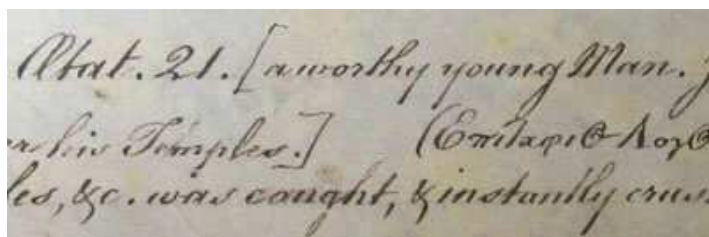 Ætat. 21. [a worthy young Man.
his Temples.] (Επιταφι@ Λογ@
&c. was caught, & instantly